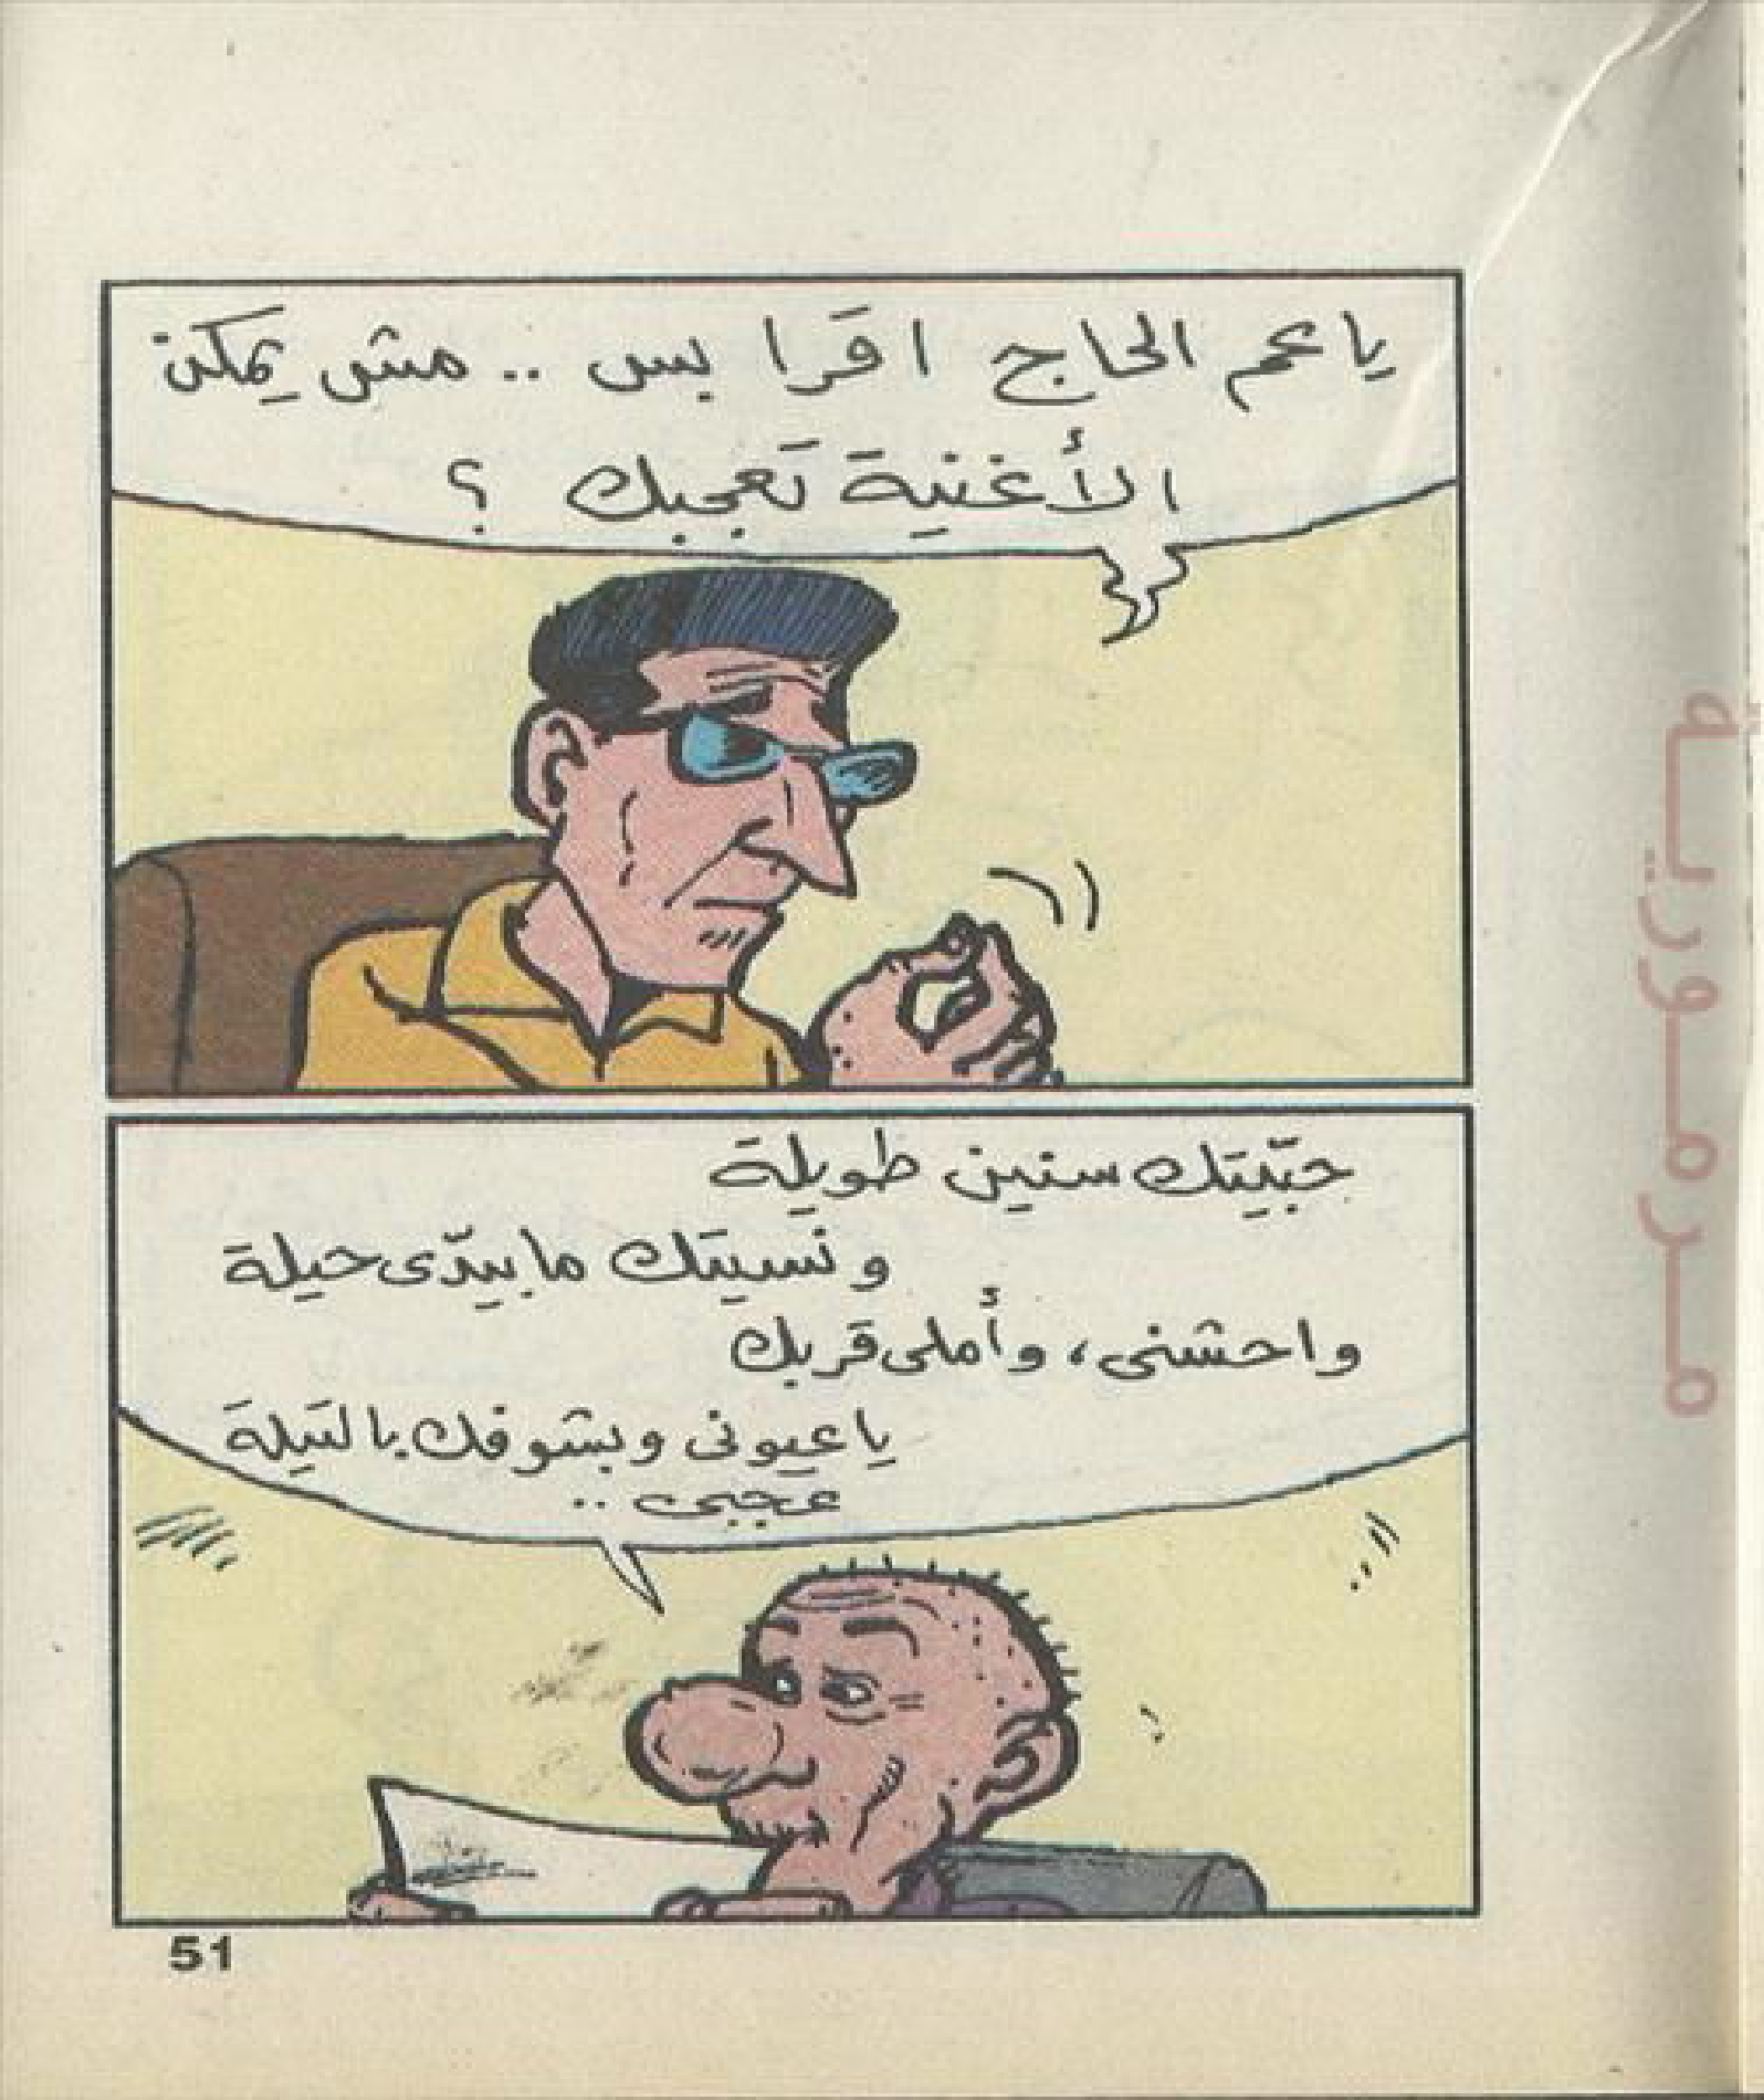 يا عم الحاج اقَرا بس .. مش يمكن
الأغنية تَعجبك ؟
حبّيتك سنين طويلة
ونسيتك ما بيدّى حيلة
واحشنى، وأملى قربك
يا عيونى وبشوفك بالليلة
عجبى ..
51
مرمورية